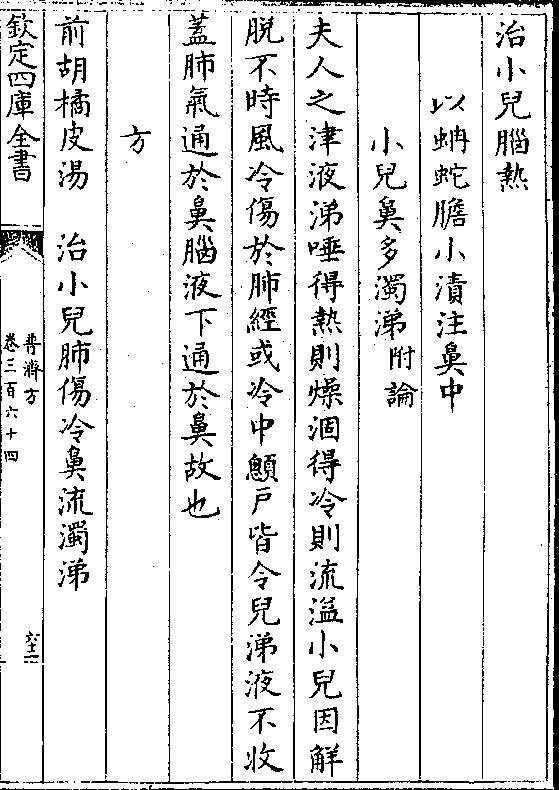 治小兒腦熱
以蚺蛇膽小漬注鼻中
小兒鼻多濁涕附論
夫人之津液涕唾得熱則燥涸得冷則流溢小兒因解
脱不時風冷傷於肺經或冷中顖戸皆令兒涕液不收
蓋肺氣通於鼻腦液下通於鼻故也
方
前胡橘皮湯　治小兒肺傷冷鼻流濁涕
欽定四庫全書
普濟方
卷三百六十四